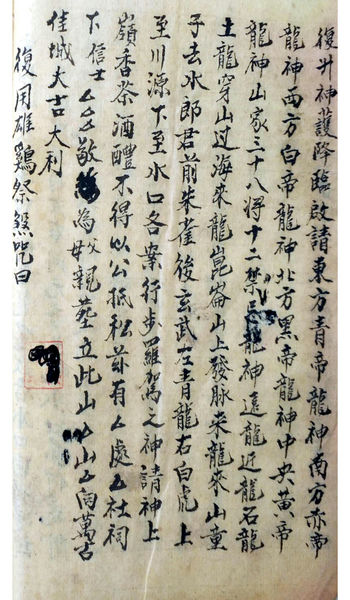 復升神護降臨啟請東方青帝龍神南方赤帝
龍神西方白帝龍神北方黑帝龍神中央黃帝
龍神山家三十八將十二禁龍神遠龍近龍石龍
土龍穿山过海來龍崑崙山上發脉來龍來山童
子去水郎君前朱雀後玄武左青龍右白虎上
至川源下至水口各案行步羅駕之神請神上
嶺香茶酒醴不得以公抵私茲有厶處厶社祠
下信士厶厶敬為父母親塟立此山厶山厶向萬古
佳城大吉大利
復用雄鷄祭煞咒曰